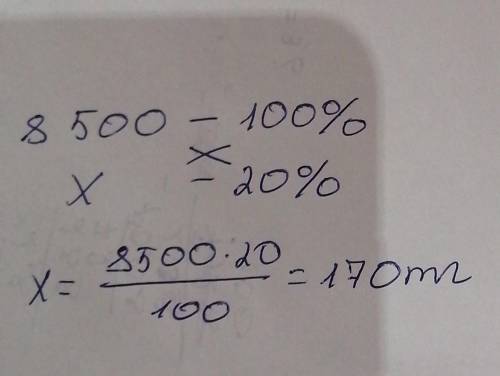 8 500 - 100%
X - 20%
X = 8500·20 / 100 = 170тг